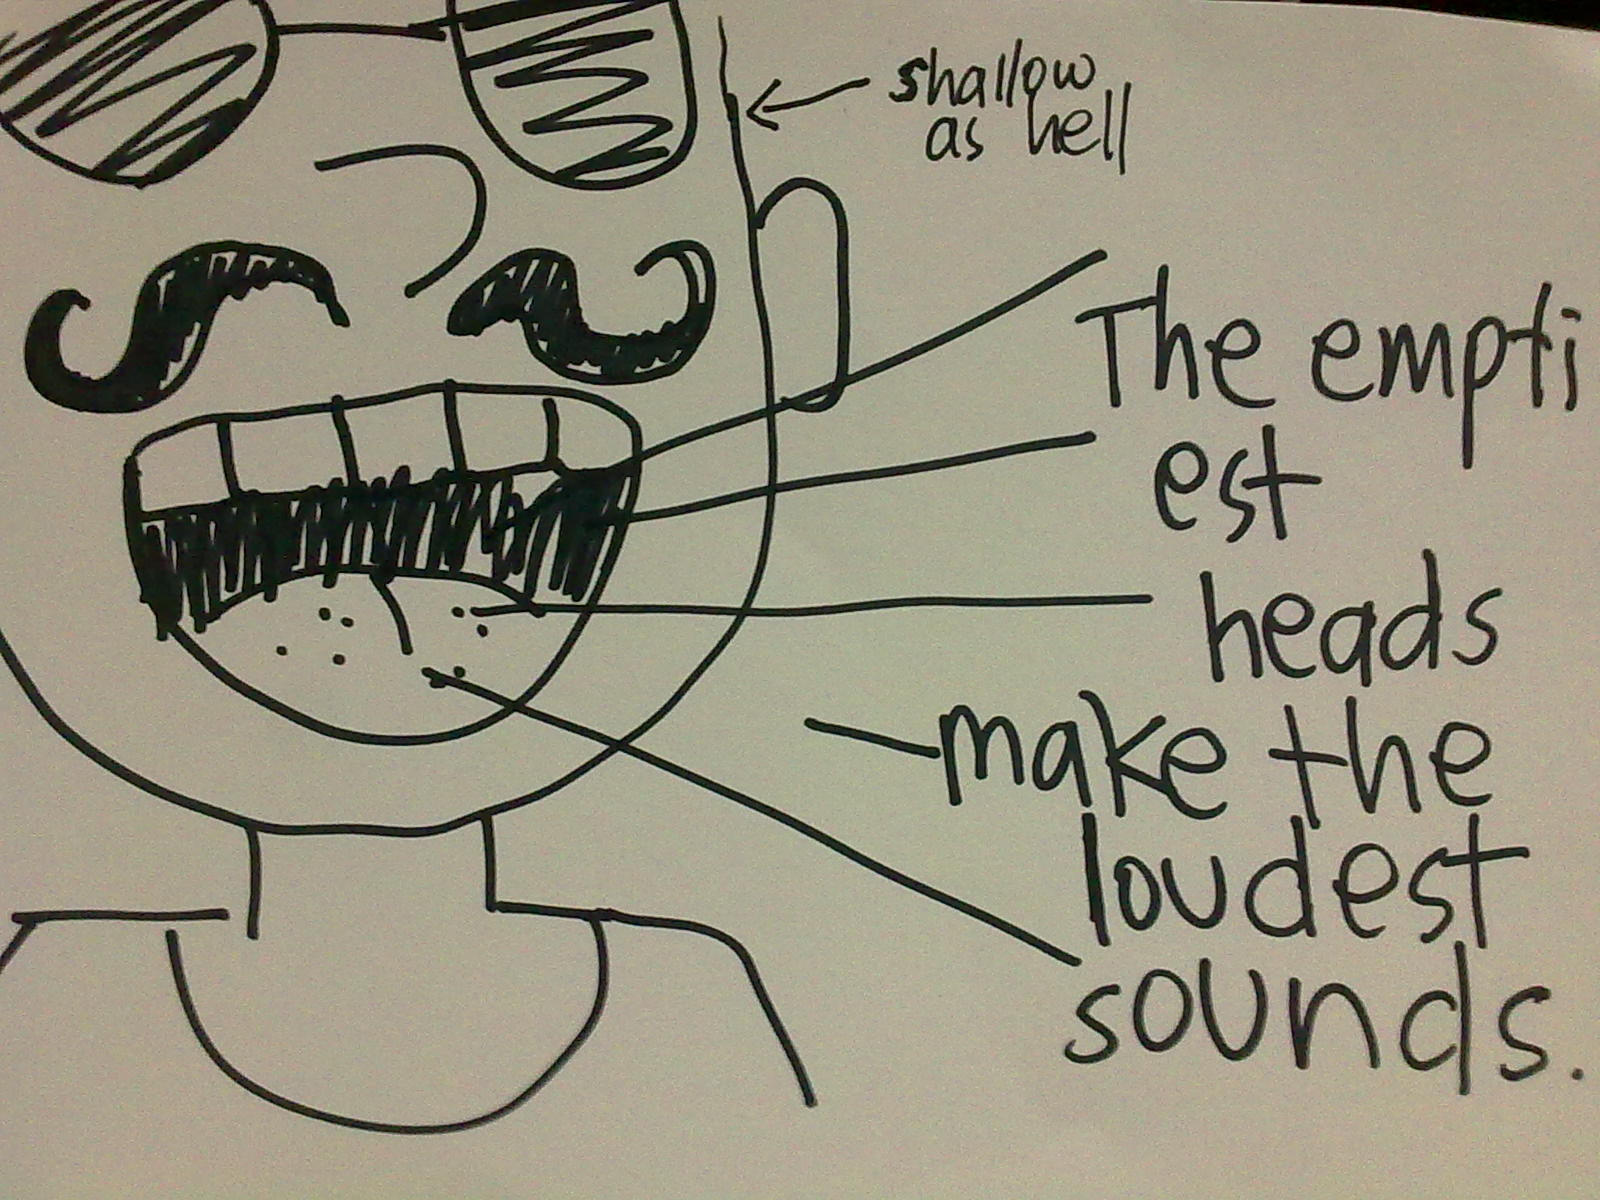 shallow
as hell
The empti
est
heads
make the
loudest
sounds.